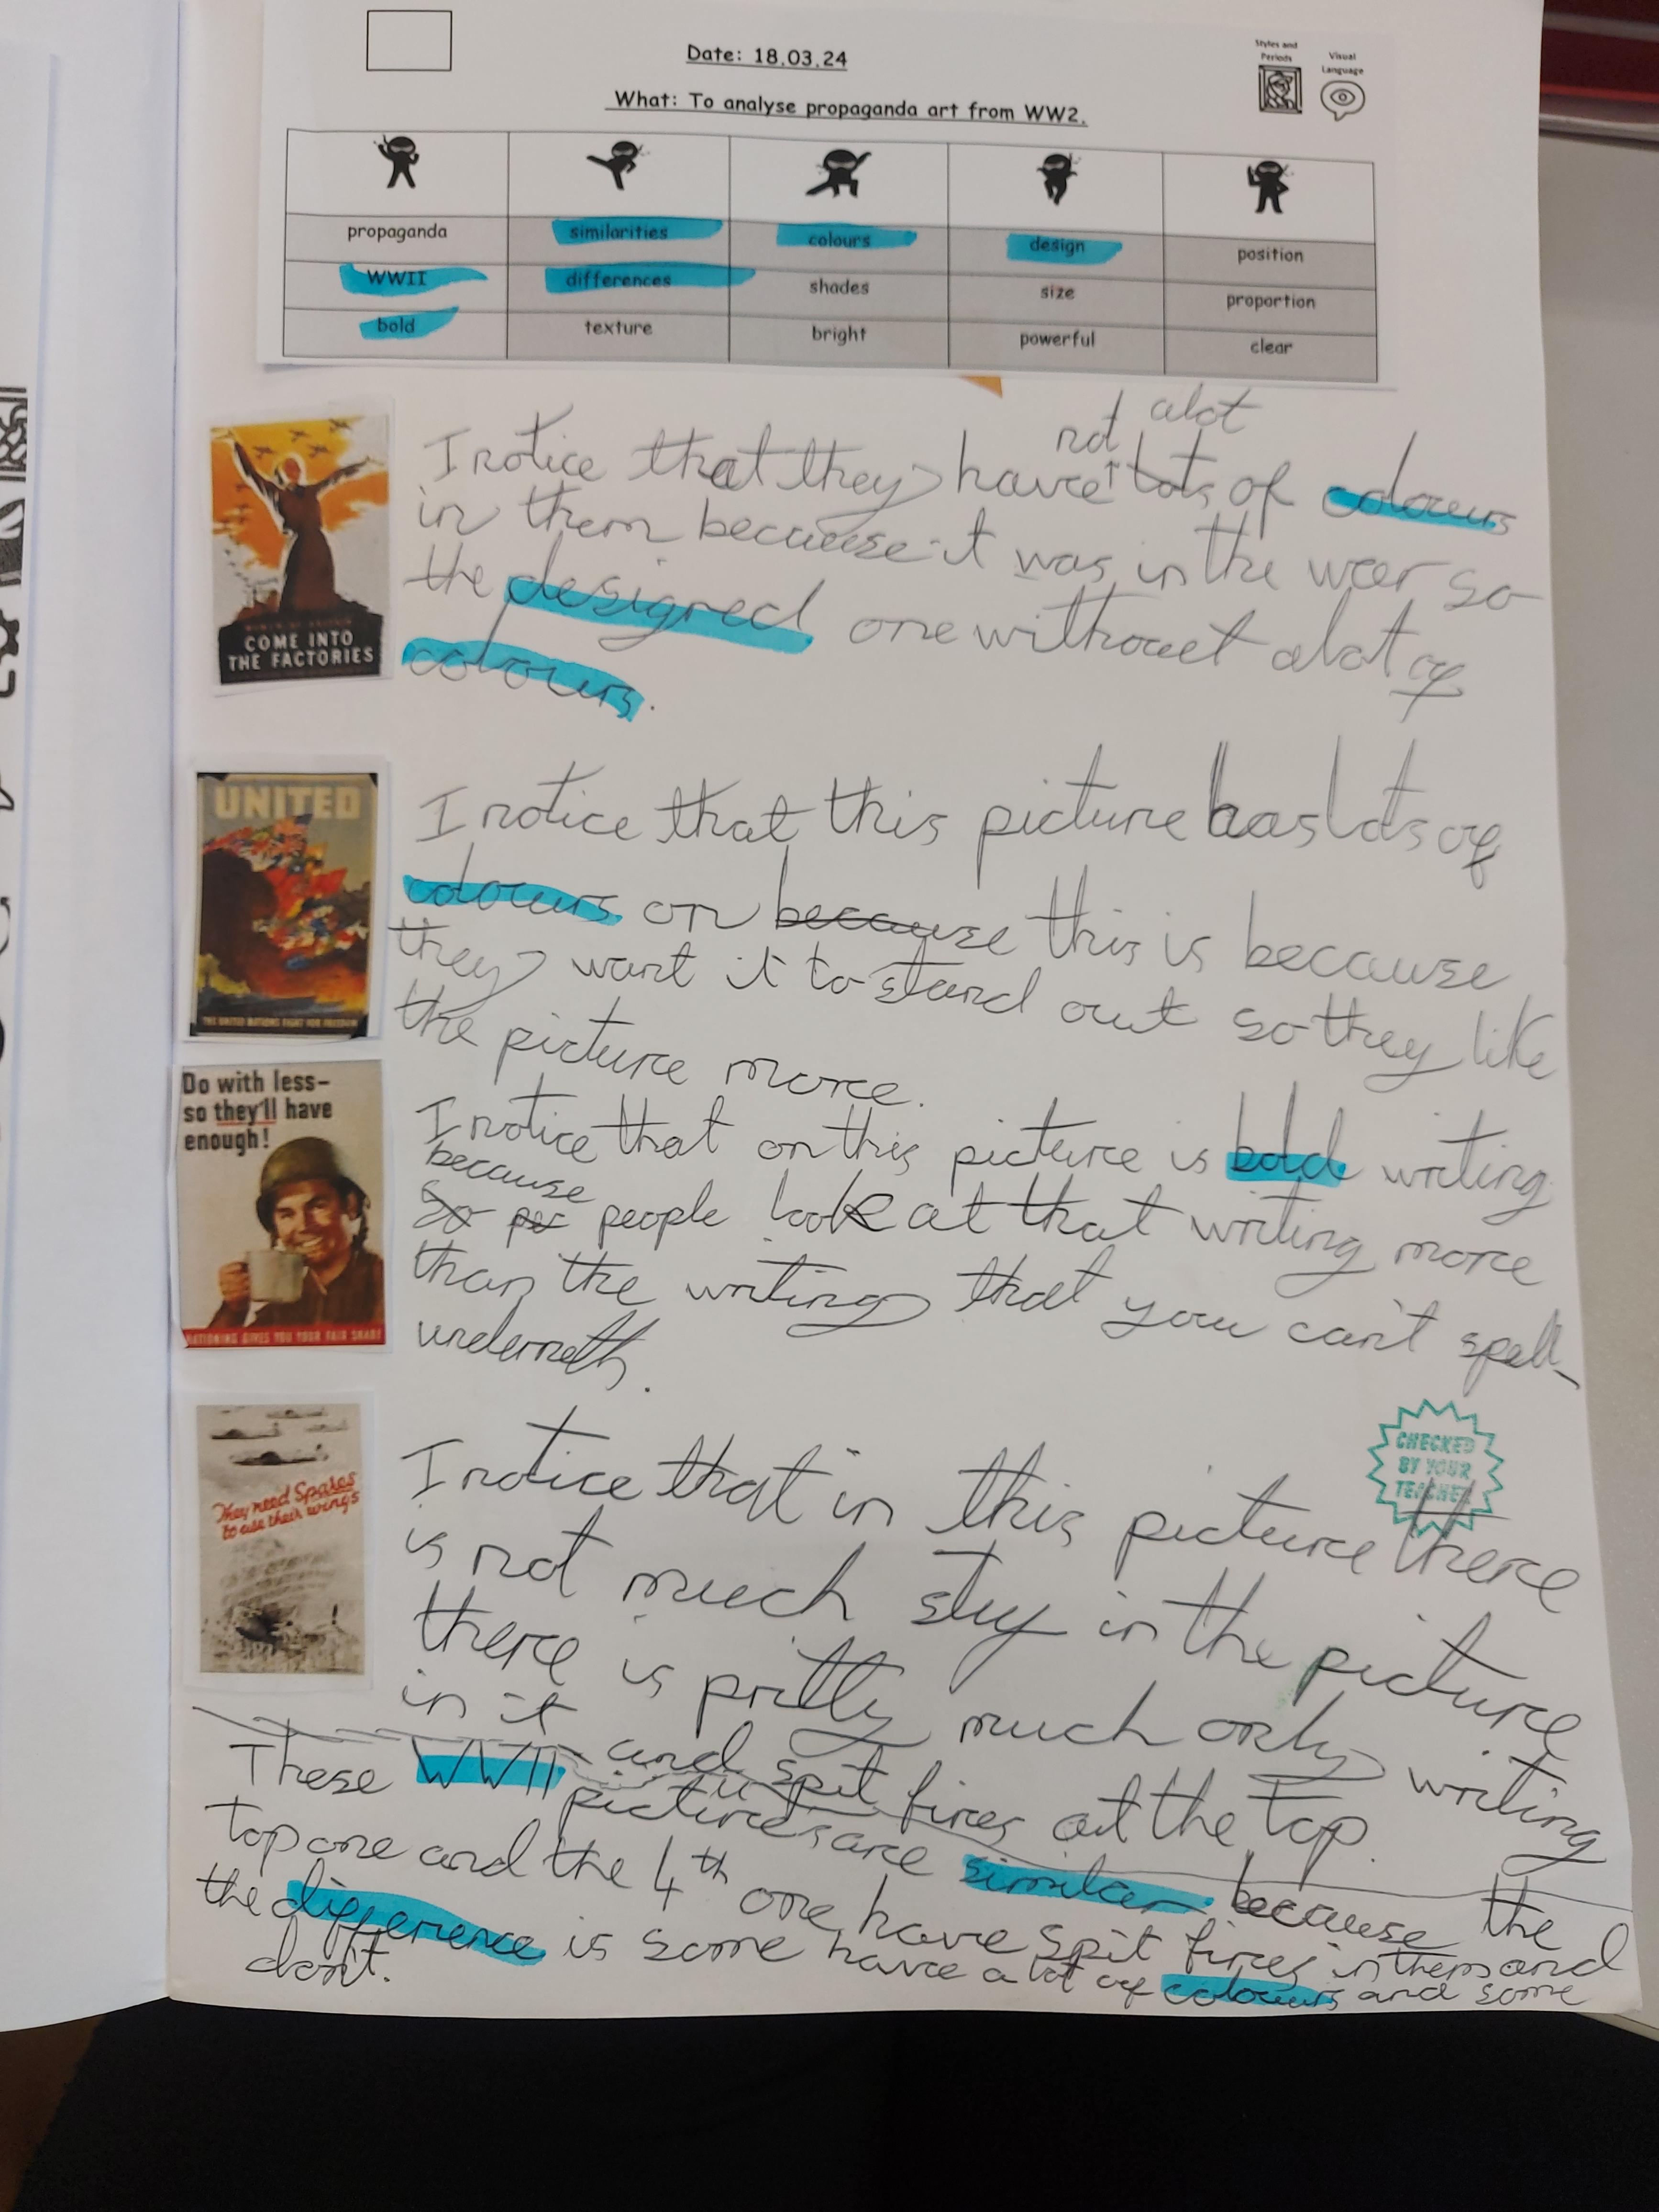 Date: 18.03.24
Styles and
Periods
Visual
Language
What: To analyse propaganda art from WW2.
propaganda similarities colours design position
WWII differences shades size proportion
bold texture bright powerful clear
COME INTO
THE FACTORIES
not alot
I notice that they have lots of colours
in them because it was in the war so
the designed one without alot of
colours.
UNITED
THE UNITED NATIONS FIGHT FOR FREEDOM
I notice that this picture has lots of
colours on because this is because
they want it to stand out so they like
the picture more.
Do with less-
so they'll have
enough!
RATIONING GIVES YOU YOUR FAIR SHARE
I notice that on this picture is bold writing
because
So people look at that writing more
than the writing that you can't spell
underneth.
CHECKED
BY YOUR
TEACHER
They need Spares
to use their wings
I notice that in this picture there
is not much stuf in the picture
there is pritty much only writing
in it and spit fires at the top.
These WWII pictures are similar because the
top one and the 4th one have spit fires in them and
the difference is some have a lot of colours and some
don't.